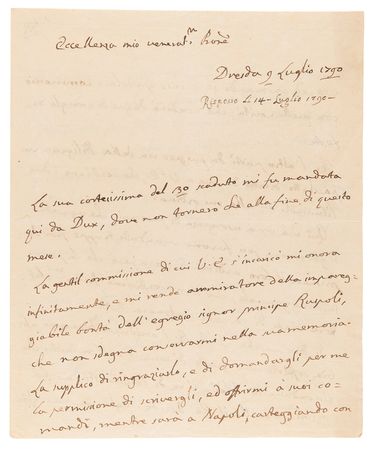 Eccellenza mio venerat.mo Prone
Dresda 9 Luglio 1790
Risposto li 14 Luglio 1790
La sua cortesissima del 30 scaduto mi fu mandata
qui da Dux, dove non tornerò che alla fine di questo
mese.
La gentil commissione di cui V. E. s'incaricò mi onora
infinitamente, e mi rende ammiratore della impareg-
giabile bontà dell'egregio signor principe Ruspoli,
che non isdegna conservarmi nella sua memoria.
La supplico di ringraziarlo, e di domandargli per me
la permissione di scrivergli, ed offrirmi à suoi co-
mandi, mentre sarà a Napoli, carteggiando con